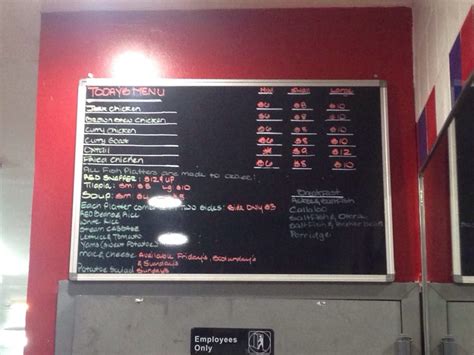 TODAY'S MENU Mini Small Large
Jerk Chicken $6 $8 $10
Brown Stew Chicken $6 $8 $10
Curry Chicken $6 $8 $10
Curry Goat $8 $10
Oxtail $9 $12
Fried Chicken $6 $8 $10
All Fish Platters are made to order:
RED SNAPPER: $12 & UP
Tilapia: Sm: $8 Lg $10
Soup: Sm: $
Each Platter Comes w/ Two Sides: Side Only $3
RED Beans & Rice
White Rice
Steam CABBAGE
Lettuce & Tomato
Yams (Sweet Potatoes)
Mac & Cheese Available Friday's, Saturday's
& Sundays
Potatoe Salad Sundays
Breakfast
Ackee & Saltfish
Callaloo
Saltfish & Okra
Salt Fish &
Porridge
Employees
Only